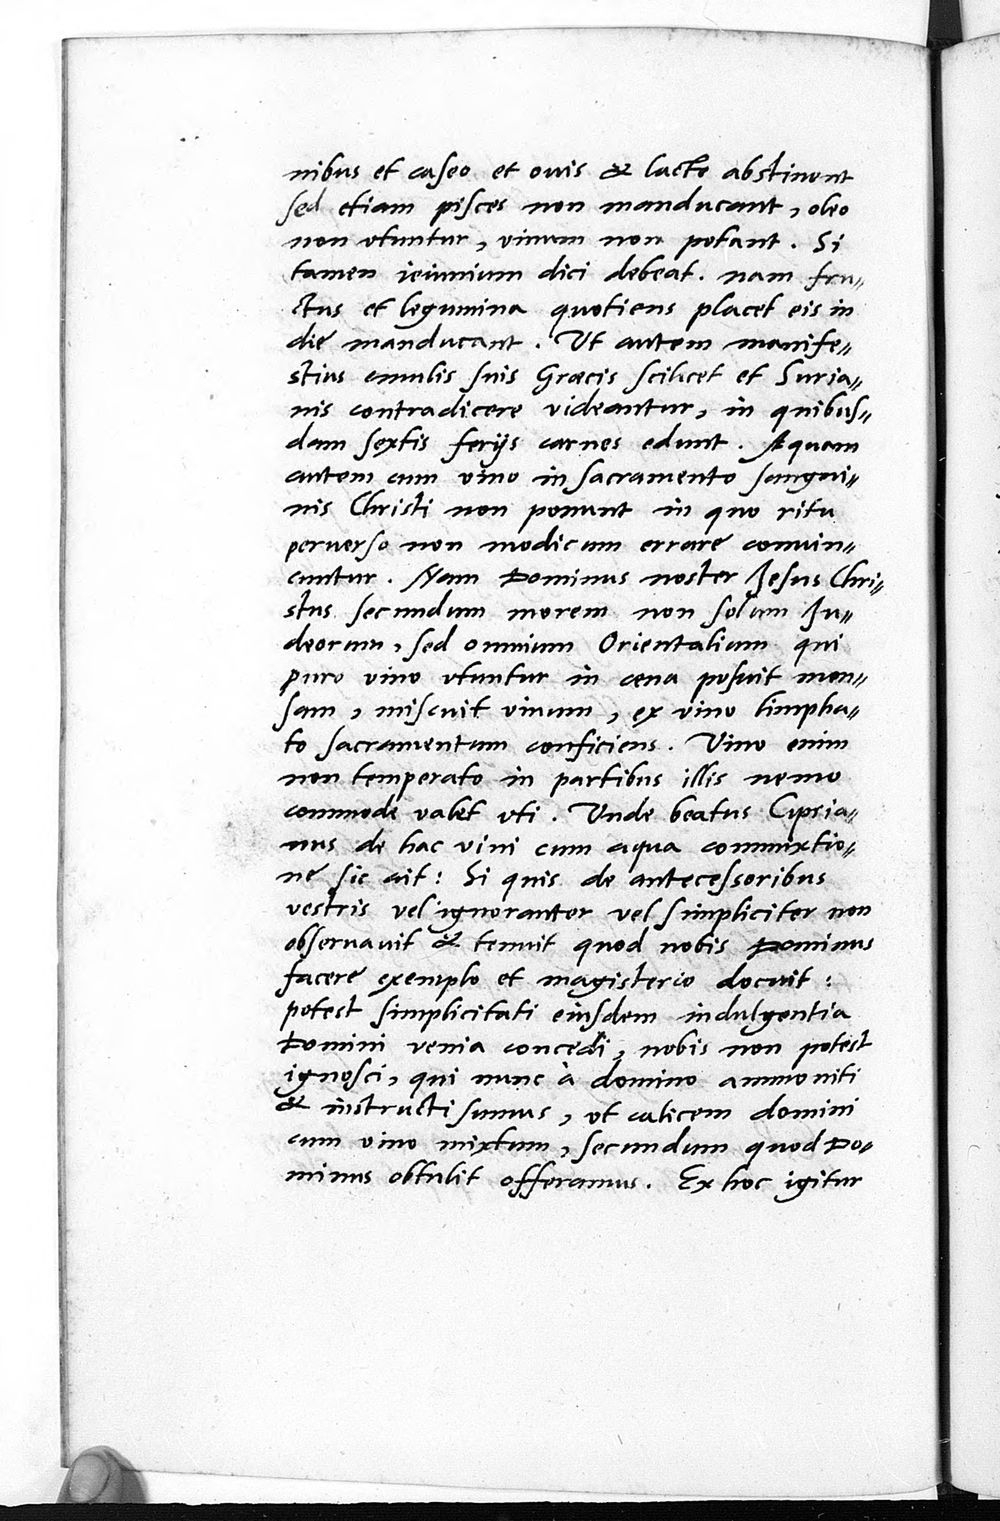 nibus et caseo et ouis & lacte abstinent
sed etiam pisces non manducant, oleo
non vtuntur, vinum non potant. Si
tamen ieiunium dici debeat. nam fru„
ctus et legumina quotiens placet eis in
die manducant. Ut autem manife„
stius emulis suis Græcis scilicet et Suria„
nis contradicere videantur, in quibus„
dam sextis ferijs carnes edunt. Aquam
autem cum vino in sacramento sangui„
nis Christi non ponunt in quo ritu
peruerso non modicum errare conuin„
cuntur. Nam Dominus noster Jesus Chri„
stus secundum morem non solum Ju„
deorum, sed omnium Orientalium qui
puro vino vtuntur in cena posuit men„
sam, miscuit vinum, ex vino limpha„
to sacramentum conficiens. Vino enim
non temperato in partibus illis nemo
commode valet vti. Unde beatus Cipria„
nus de hac vini cum aqua commixtio„
ne sic ait: Si quis de antecessoribus
vestris vel ignoranter vel simpliciter non
obseruauit & tenuit quod nobis Dominus
facere exemplo et magisterio docuit:
potest simplicitati eiusdem indulgentia
Domini venia concedi, nobis non potest
ignosci, qui nunc à domino ammoniti
& instructi sumus, vt calicem domini
cum vino mixtum, secundum quod Do„
minus obtulit offeramus. Ex hoc igitur